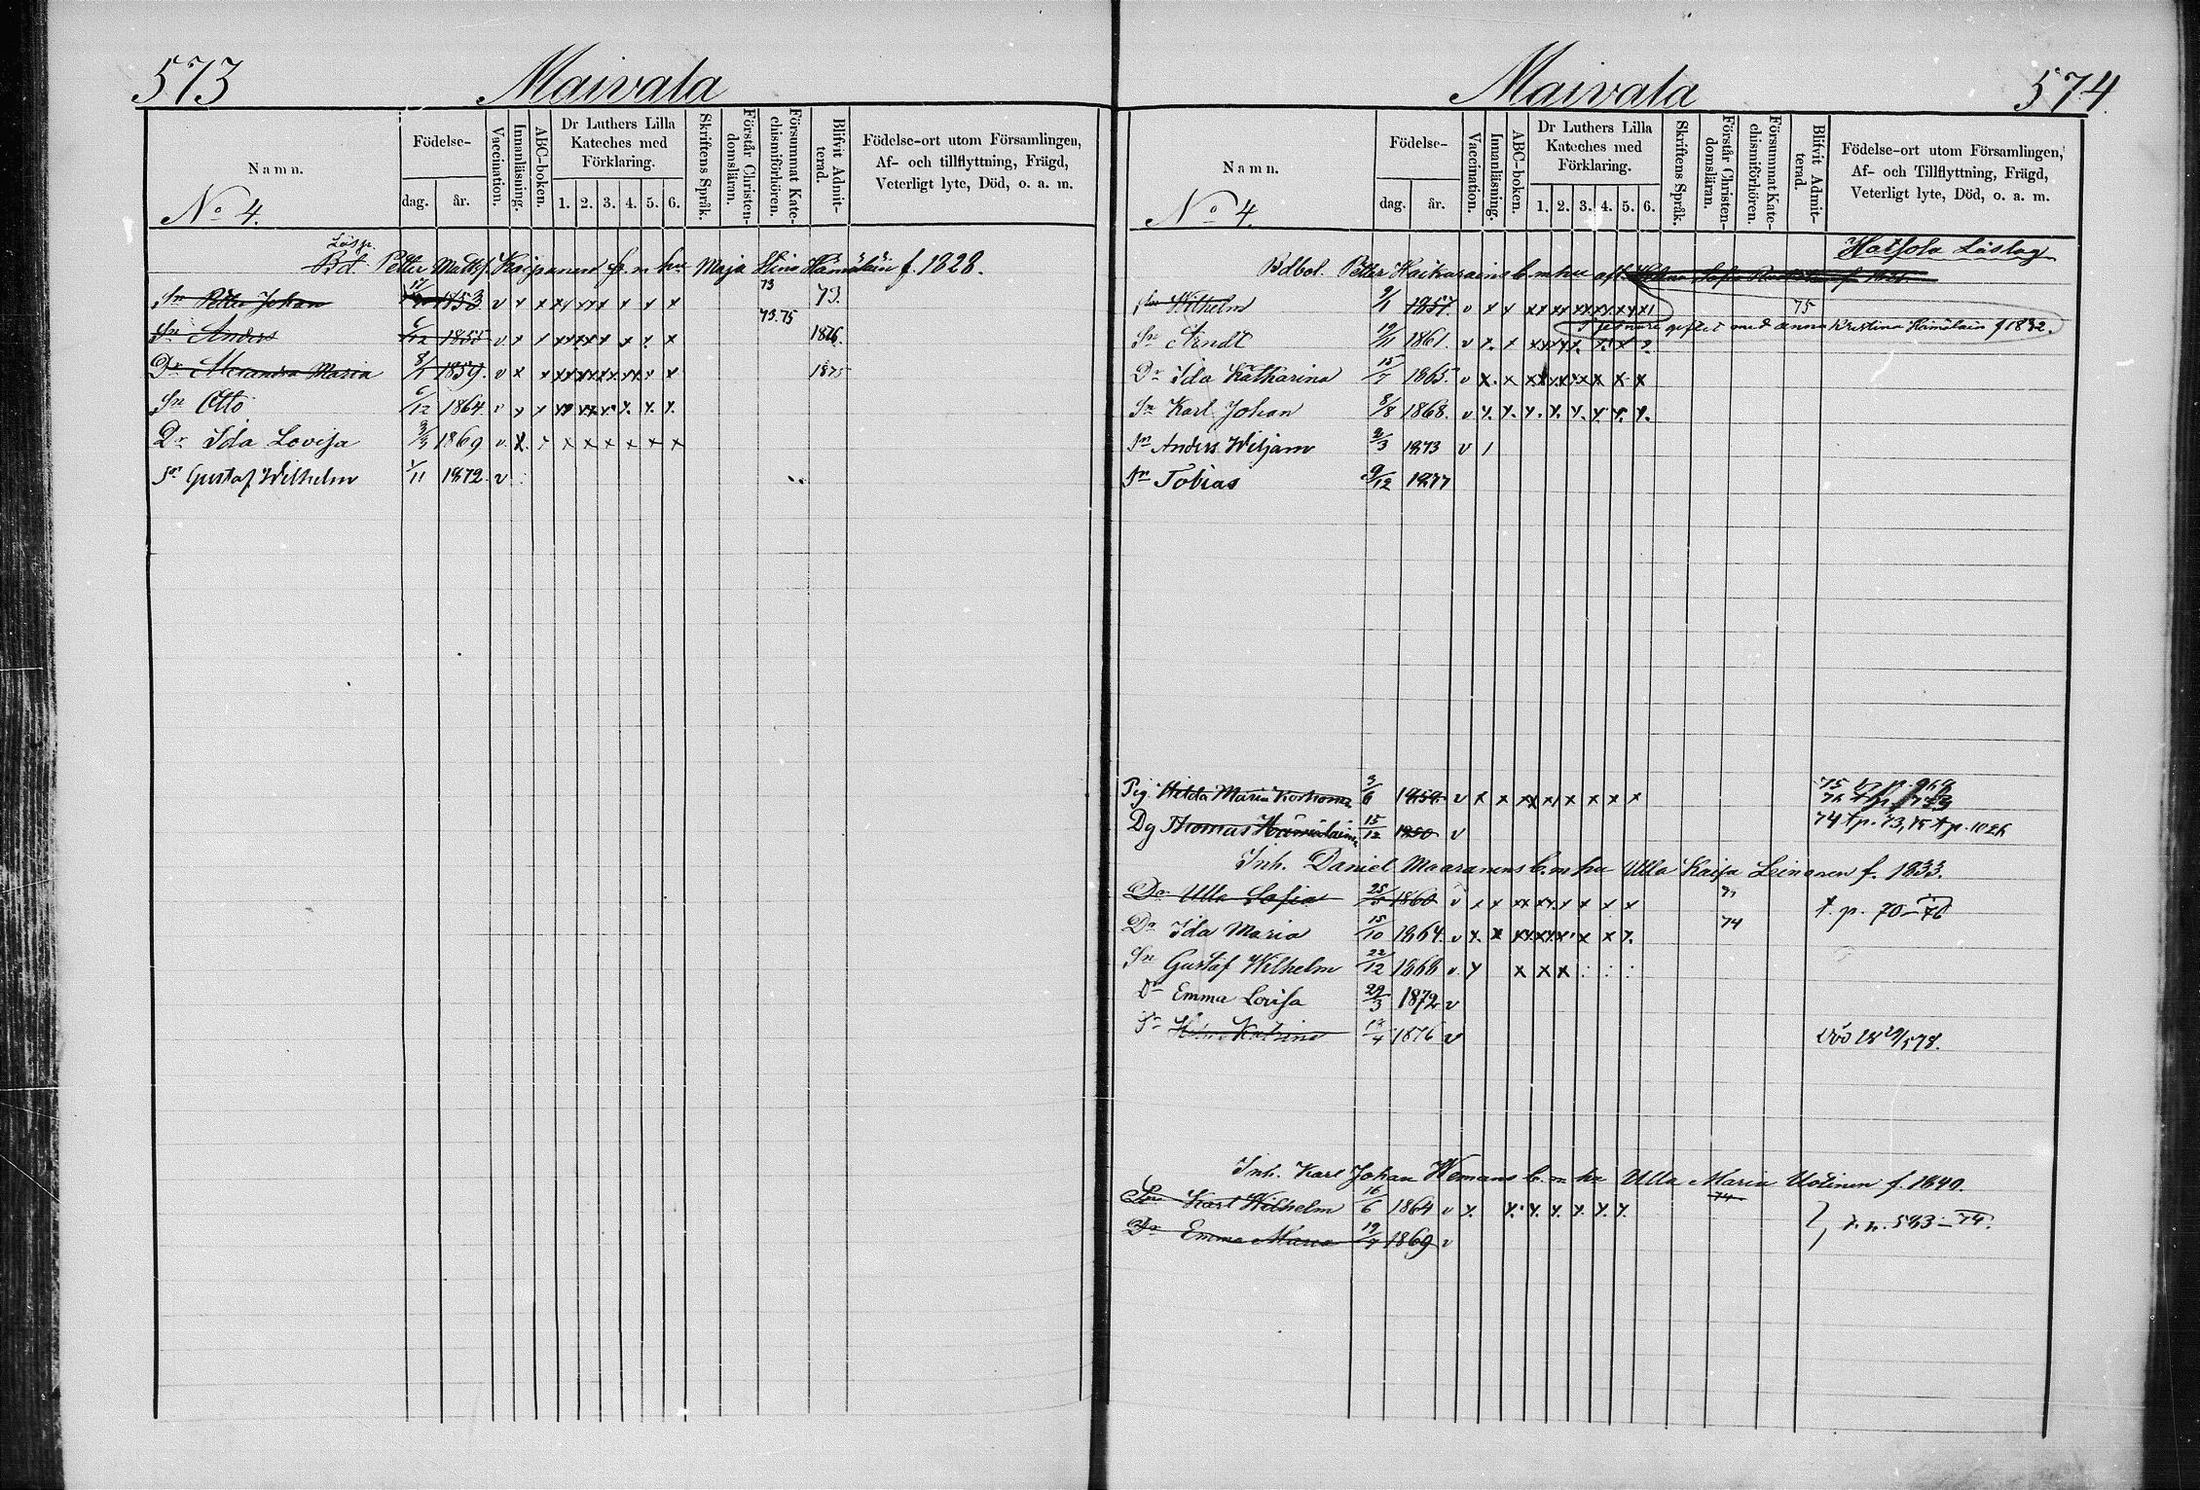 573
Maivala
Namn.
Födelse-
dag.
år.
Vaccination.
Innanläsning.
ABC-boken.
Dr Luthers Lilla
Kateches med
Förklaring.
1. 2. 3. 4. 5. 6.
Skriftens Språk.
Förstår Christen-
domsläran.
Försummat Kate-
chismiförhören.
Blifvit Admit-
terad.
Födelse-ort utom Församlingen,
Af- och tillflyttning, Frägd,
Veterligt lyte, Död, o. a. m.
No 4.
Bd. Petter Matts. Kaipanen m hu Maja Stina Hämäläin f. 1828.
Sn Petter Johan 1853 v x x x x x x x x 73 73.
Sn Anders 6/12 1855 v x x x x x x x x 73.75 1876.
Dr Alexandra Maria 8/1 1859. v x x x x x x x x 1875
Sn Otto 6/12 1864 v x x x x x x x x
Dr Ida Lovisa 3/3 1869 v x x x x x x x x
Sn Gustaf Wilhelm 1/11 1872 v
Maivala
574
Namn.
Födelse-
dag.
år.
Vaccination.
Innanläsning.
ABC-boken.
Dr Luthers Lilla
Kateches med
Förklaring.
1. 2. 3. 4. 5. 6.
Skriftens Språk.
Förstår Christen-
domsläran.
Försummat Kate-
chismiförhören.
Blifvit Admit-
terad.
Födelse-ort utom Församlingen,
Af- och Tillflyttning, Frägd,
Veterligt lyte, Död, o. a. m.
No 4.
Hatsola Läslag
Bdbol. Petter Haikarainens b. m hu afl.
Sn Wilhelm 9/1 1857 v x x xx xx xx xx xx x 75
giftet med Anna Kristina Hämäläin f 1832.
Sn Arndt 19/11 1861. v x x x x x x x x
Dr Ida Katharina 15/7 1865. v x x x x x x x x
Sn Karl Johan 8/8 1868. v x x x x x x x x
Sn Anders Wiljam 2/3 1873 v
Sn Tobias 9/12 1877
Pig Hilda Maria 3/6 1859 v x x x x x x x x 75
Dg Thomas Hämäläin 15/12 1850 v 74 tp. 73, 75 tp. 1026
Inh. Daniel Maaranens b. m hu Ulla Kaisa Leinonen f. 1833.
Dr Ulla Sofia 25/5 1860 v x x x x x x x x t. p. 70-76
Dr Ida Maria 15/10 1864. v x x x x x x x x 74
Sn Gustaf Wilhelm 22/12 1868 v x x x x
Dr Emma Lovisa 29/3 1872 v
Katrina 1876 v död
Inh. Karl Johan Hemans b. m hu Ulla Maria Uotinen f. 1840.
Sn Karl Wilhelm 16/6 1864 v x x x x x x x 74
Dr Emma Maria 19/7 1869 v t. p. 583-74.